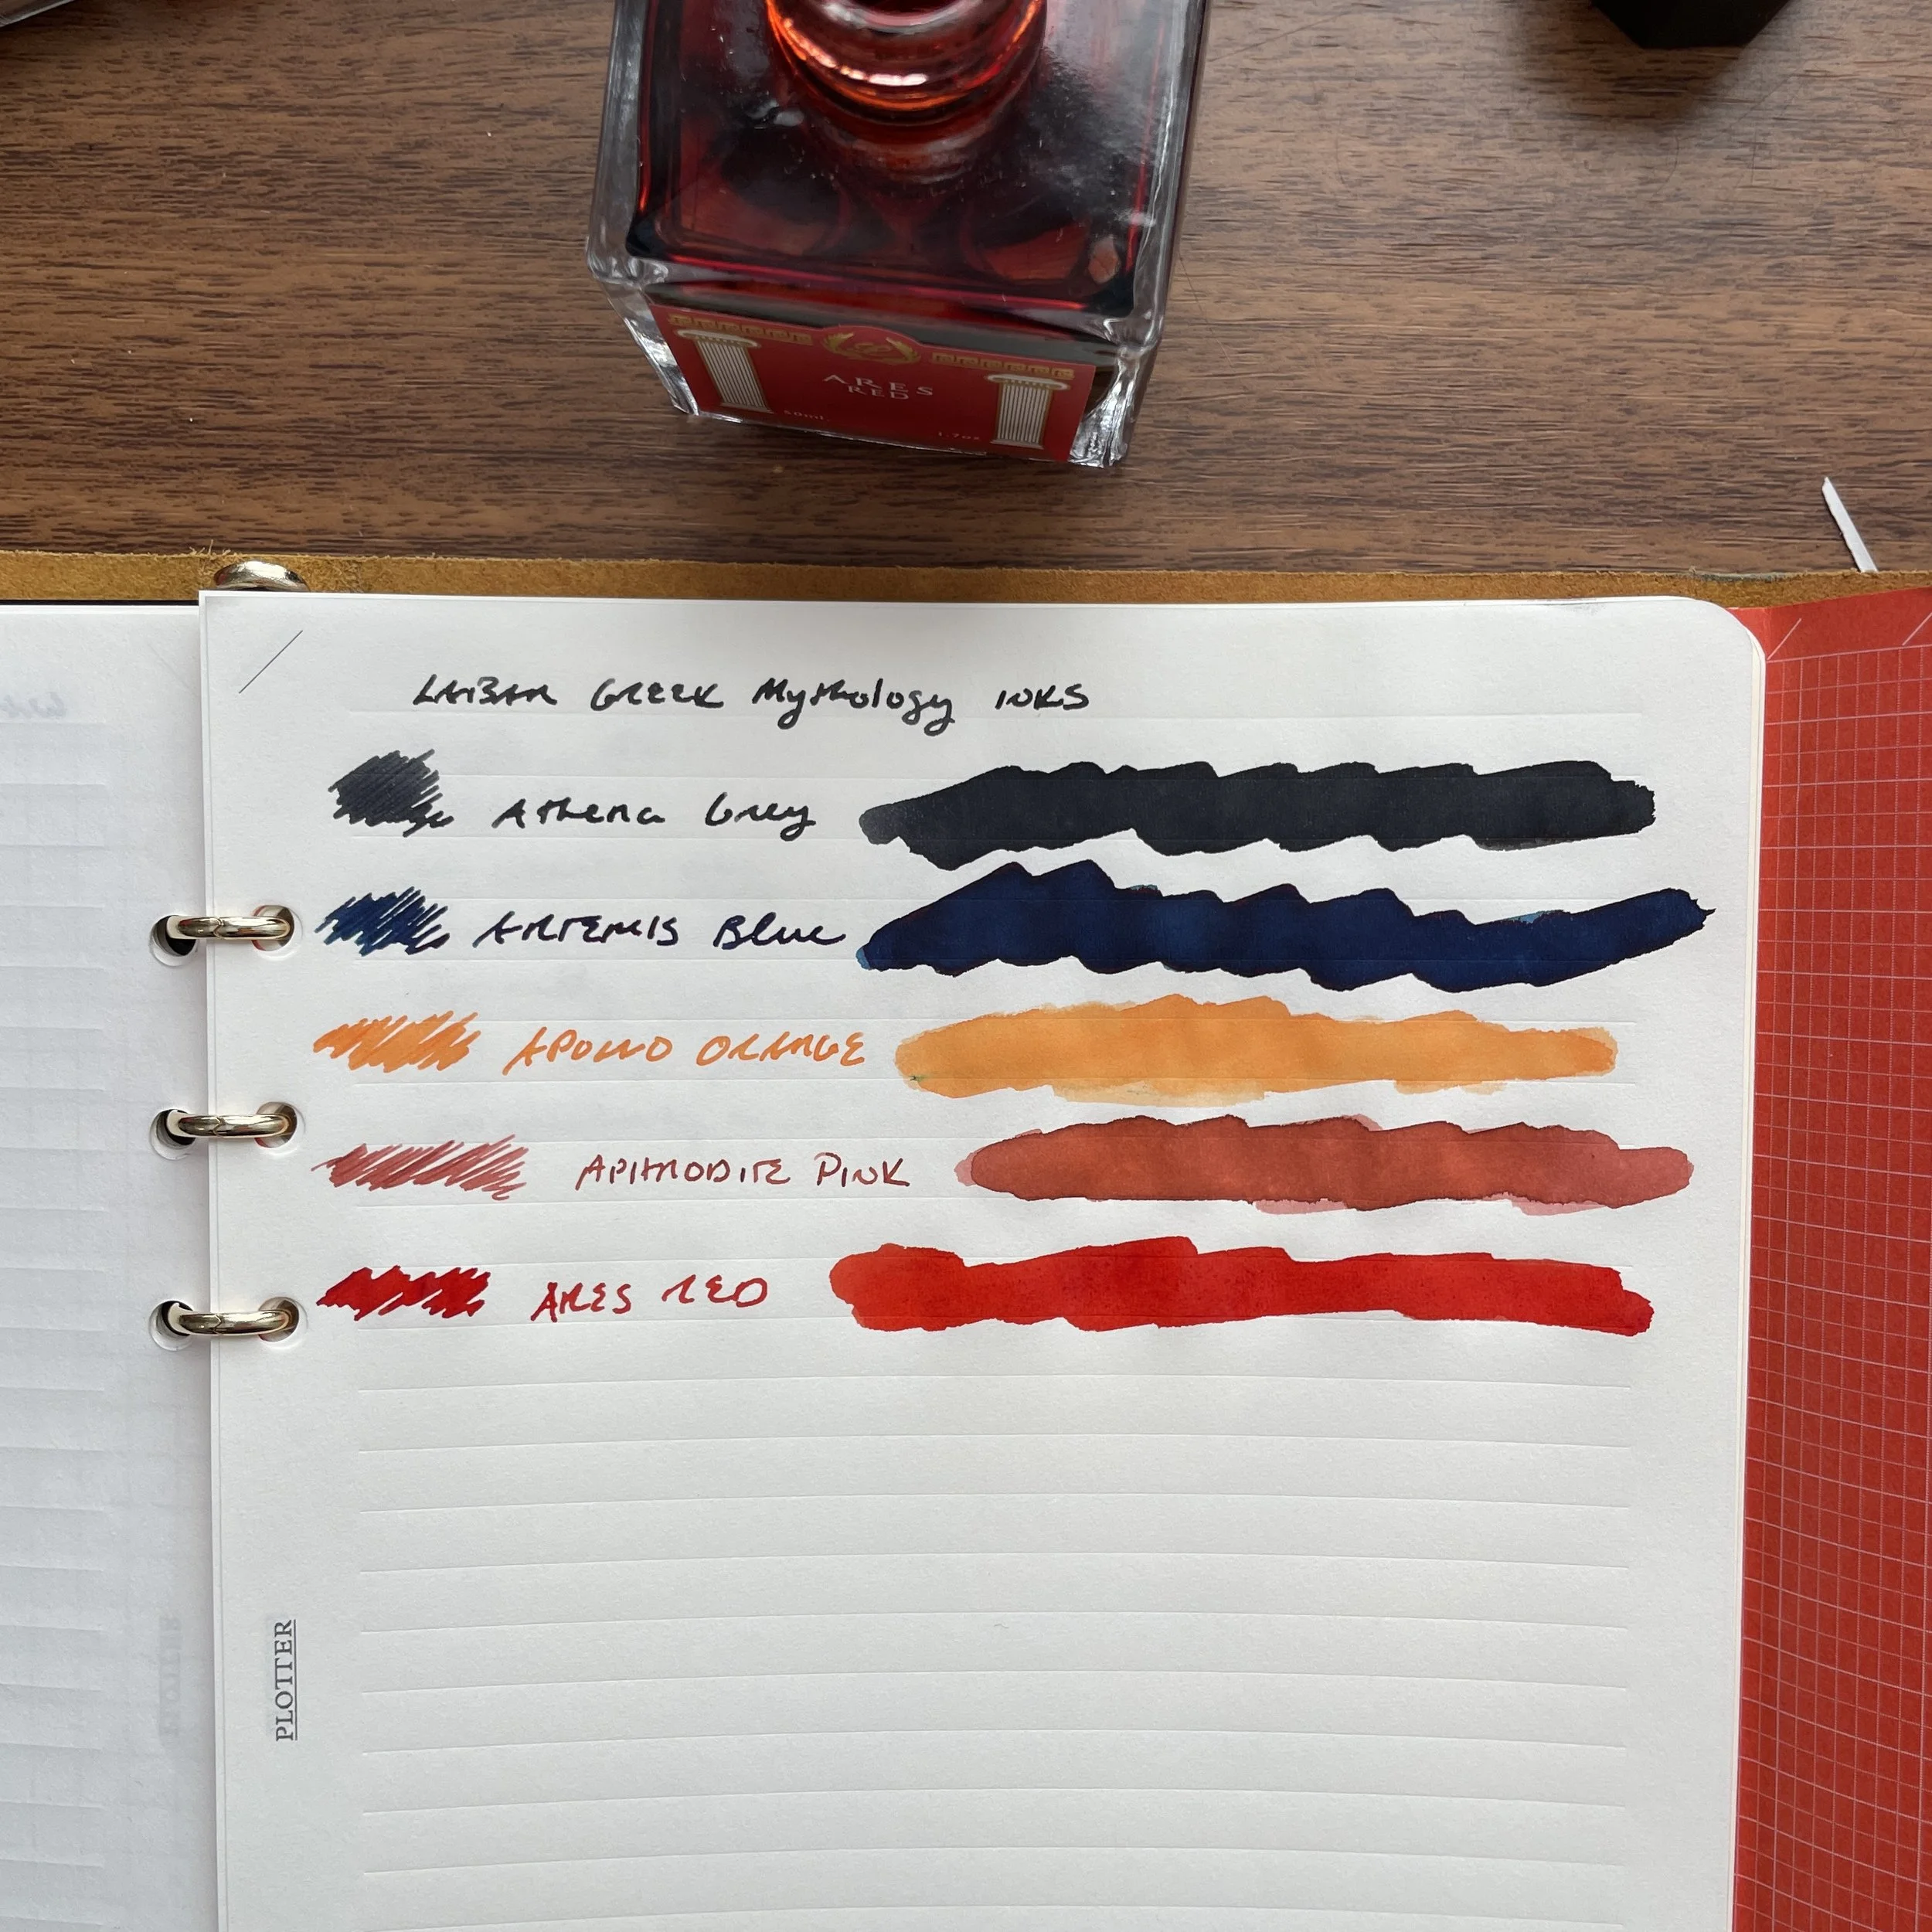 ARES
RED
50ml
1.7oz
LAIBAN GREEK Mythology INKS
Athena Grey
ARTEMIS Blue
APOLLO ORANGE
APHRODITE PINK
ARES RED
PLOTTER